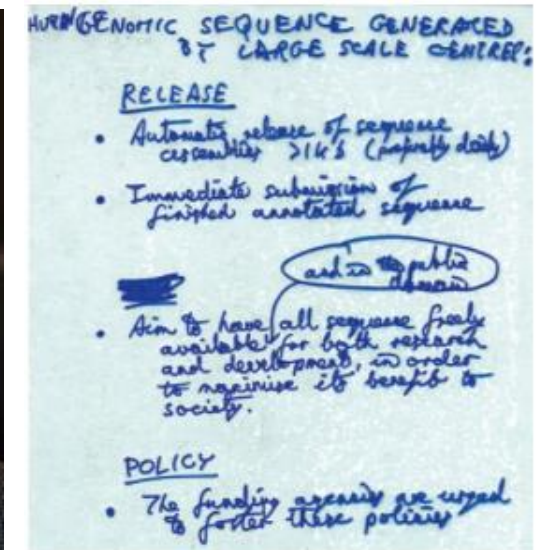 HUMAN GENOMIC SEQUENCE GENERATED
BY LARGE SCALE CENTRES:
RELEASE
• Automatic release of sequence
assemblies >1kb (preferably daily)
• Immediate submission of
finished annotated sequence
and in the public
domain
• Aim to have all sequence freely
available for both research
and development, in order
to maximise its benefit to
society.
POLICY
• The funding agencies are urged
to foster these policies